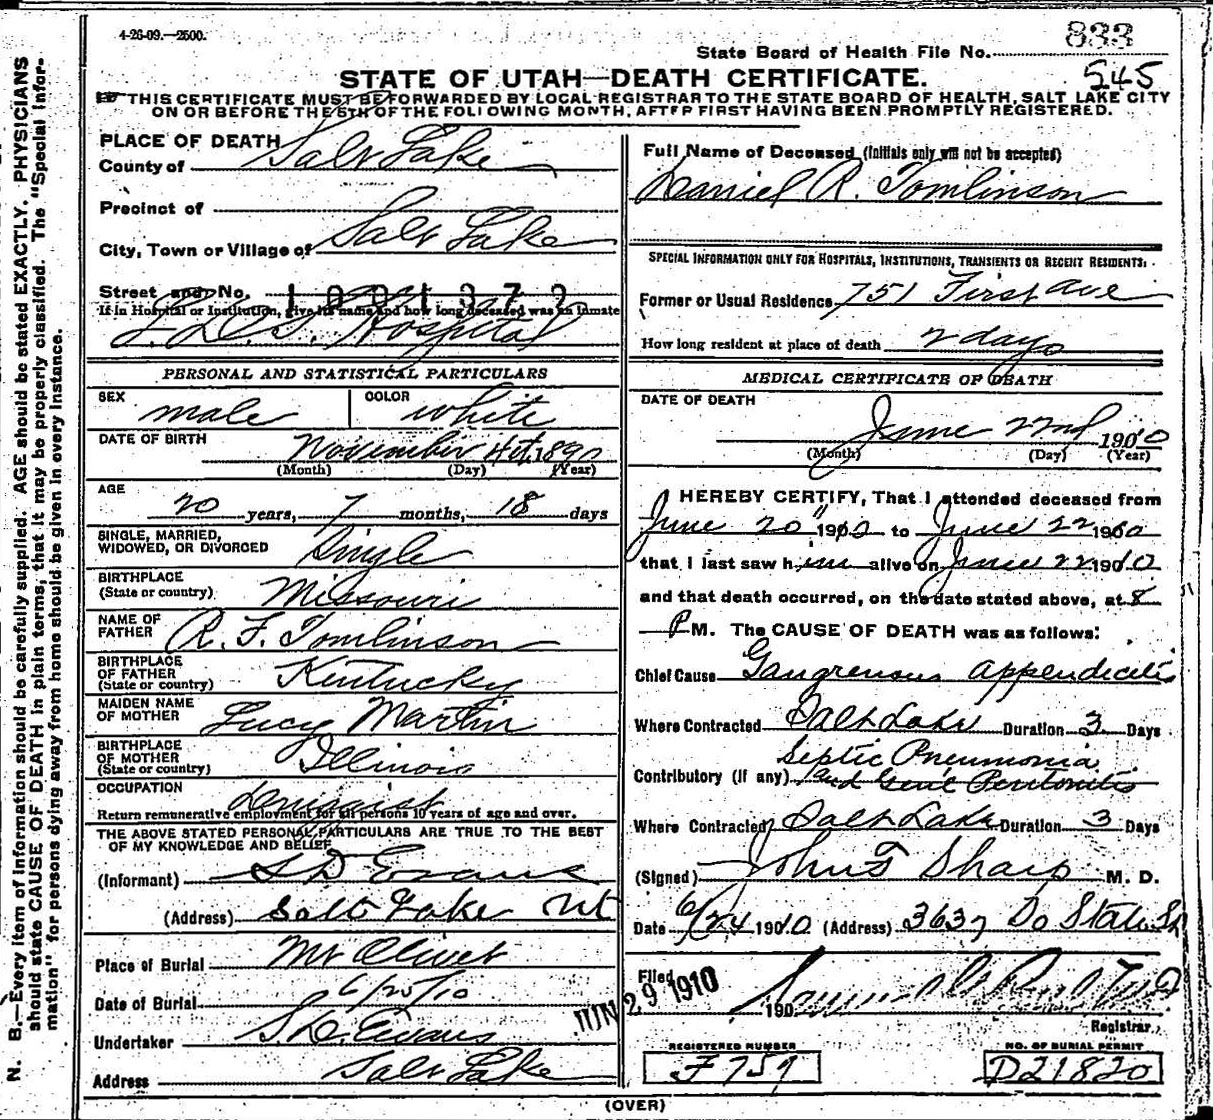 4-26-09.—2500.
833
State Board of Health File No.
545
STATE OF UTAH—DEATH CERTIFICATE.
THIS CERTIFICATE MUST BE FORWARDED BY LOCAL REGISTRAR TO THE STATE BOARD OF HEALTH, SALT LAKE CITY
ON OR BEFORE THE 5TH OF THE FOLLOWING MONTH, AFTER FIRST HAVING BEEN PROMPTLY REGISTERED.
N. B.—Every item of information should be carefully supplied. AGE should be stated EXACTLY. PHYSICIANS
should state CAUSE OF DEATH in plain terms, that it may be properly classified. The "Special Infor-
mation" for persons dying away from home should be given in every instance.
PLACE OF DEATH
County of Salt Lake
Precinct of
City, Town or Village of Salt Lake
Street and No. 1001372
If in Hospital or Institution, give its name and how long deceased was an inmate
L.D.S. Hospital
PERSONAL AND STATISTICAL PARTICULARS
SEX male COLOR white
DATE OF BIRTH November 4th 1890
(Month) (Day) (Year)
AGE
20 years, 7 months, 18 days
SINGLE, MARRIED,
WIDOWED, OR DIVORCED Single
BIRTHPLACE
(State or country) Missouri
NAME OF
FATHER R. F. Tomlinson
BIRTHPLACE
OF FATHER
(State or country) Kentucky
MAIDEN NAME
OF MOTHER Lucy Martin
BIRTHPLACE
OF MOTHER
(State or country) Illinois
OCCUPATION
Druggist
Return remunerative employment for all persons 10 years of age and over.
THE ABOVE STATED PERSONAL PARTICULARS ARE TRUE TO THE BEST
OF MY KNOWLEDGE AND BELIEF
(Informant) S D Evans
(Address) Salt Lake Ut
Place of Burial Mt Olivet
Date of Burial 6/25/10
Undertaker S. D. Evans
Address Salt Lake
Full Name of Deceased (Initials only will not be accepted)
Daniel R. Tomlinson
SPECIAL INFORMATION ONLY FOR HOSPITALS, INSTITUTIONS, TRANSIENTS OR RECENT RESIDENTS.
Former or Usual Residence 751 First ave
How long resident at place of death 2 days
MEDICAL CERTIFICATE OF DEATH
DATE OF DEATH
June 22nd 1910
(Month) (Day) (Year)
I HEREBY CERTIFY, That I attended deceased from
June 20" 1910 to June 22 1910
that I last saw him alive on June 22 1910
and that death occurred, on the date stated above, at 8
P M. The CAUSE OF DEATH was as follows:
Chief Cause Gangrenous appendicitis
Where Contracted Salt Lake Duration 3 Days
Septic Pneumonia
Contributory (if any) and Genl Peritonitis
Where Contracted Salt Lake Duration 3 Days
(Signed) John F Sharp M. D.
Date 6/24 1910 (Address) 3637 So State St
Filed JUN 29 1910 190
Registrar
REGISTERED NUMBER
F 759
NO. OF BURIAL PERMIT
D21820
(OVER)